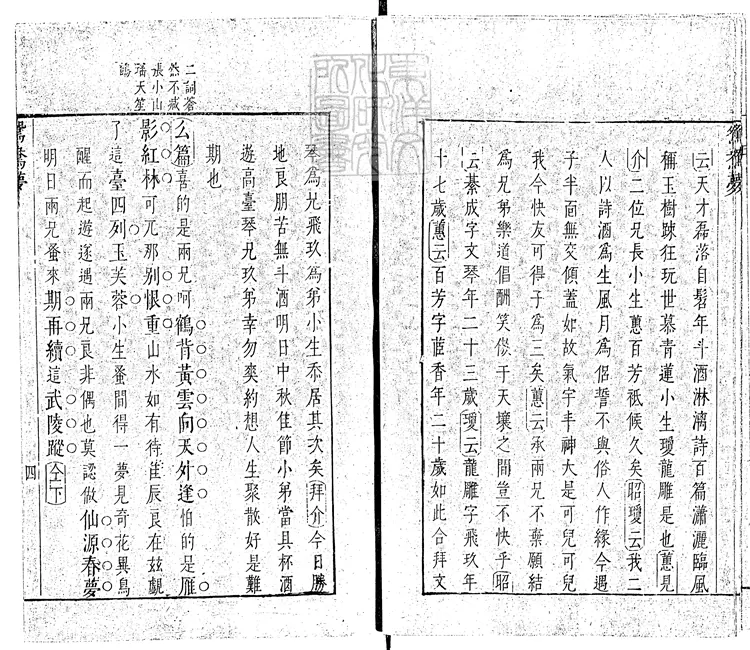 云天才磊落自髫年斗酒淋漓詩百篇瀟灑臨風
稱玉樹踈狂玩世慕青蓮小生瓊龍雕是也蕙見
介二位兄長小生蕙百芳祗候久矣昭瓊云我二
人以詩酒爲生風月爲侶誓不與俗人作緣今遇
子半面無交傾蓋如故氣宇丰神大是可兒可兒
我今快友可得子爲三矣蕙云承兩兄不棄願結
爲兄弟樂道倡酬笑傲于天壤之間豈不快乎昭
云綦成字文琴年二十三歲瓊云龍雕字飛玖年
十七歲蕙云百芳字茝香年二十歲如此合拜文
鴛鴦夢
琴爲兄飛玖爲弟小生忝居其次矣拜介今日勝
地良朋苦無斗酒明日中秋佳節小弟當具杯酒
遊高臺琴兄玖弟幸勿爽約想人生聚散好是難
期也
么篇喜的是兩兄呵鶴背黃雲向天外逢怕的是雁
影紅林可兀那別恨重山水如有待佳辰良在茲覷
了這臺四列玉芙蓉小生蚤間得一夢見奇花異鳥
醒而起遊遂遇兩兄良非偶也莫認做仙源春夢
明日兩兄蚤來期再續這武陵蹤仝下
二詞蒼
然不減
張小山
喬天笙
鶴
鴛鴦夢
四